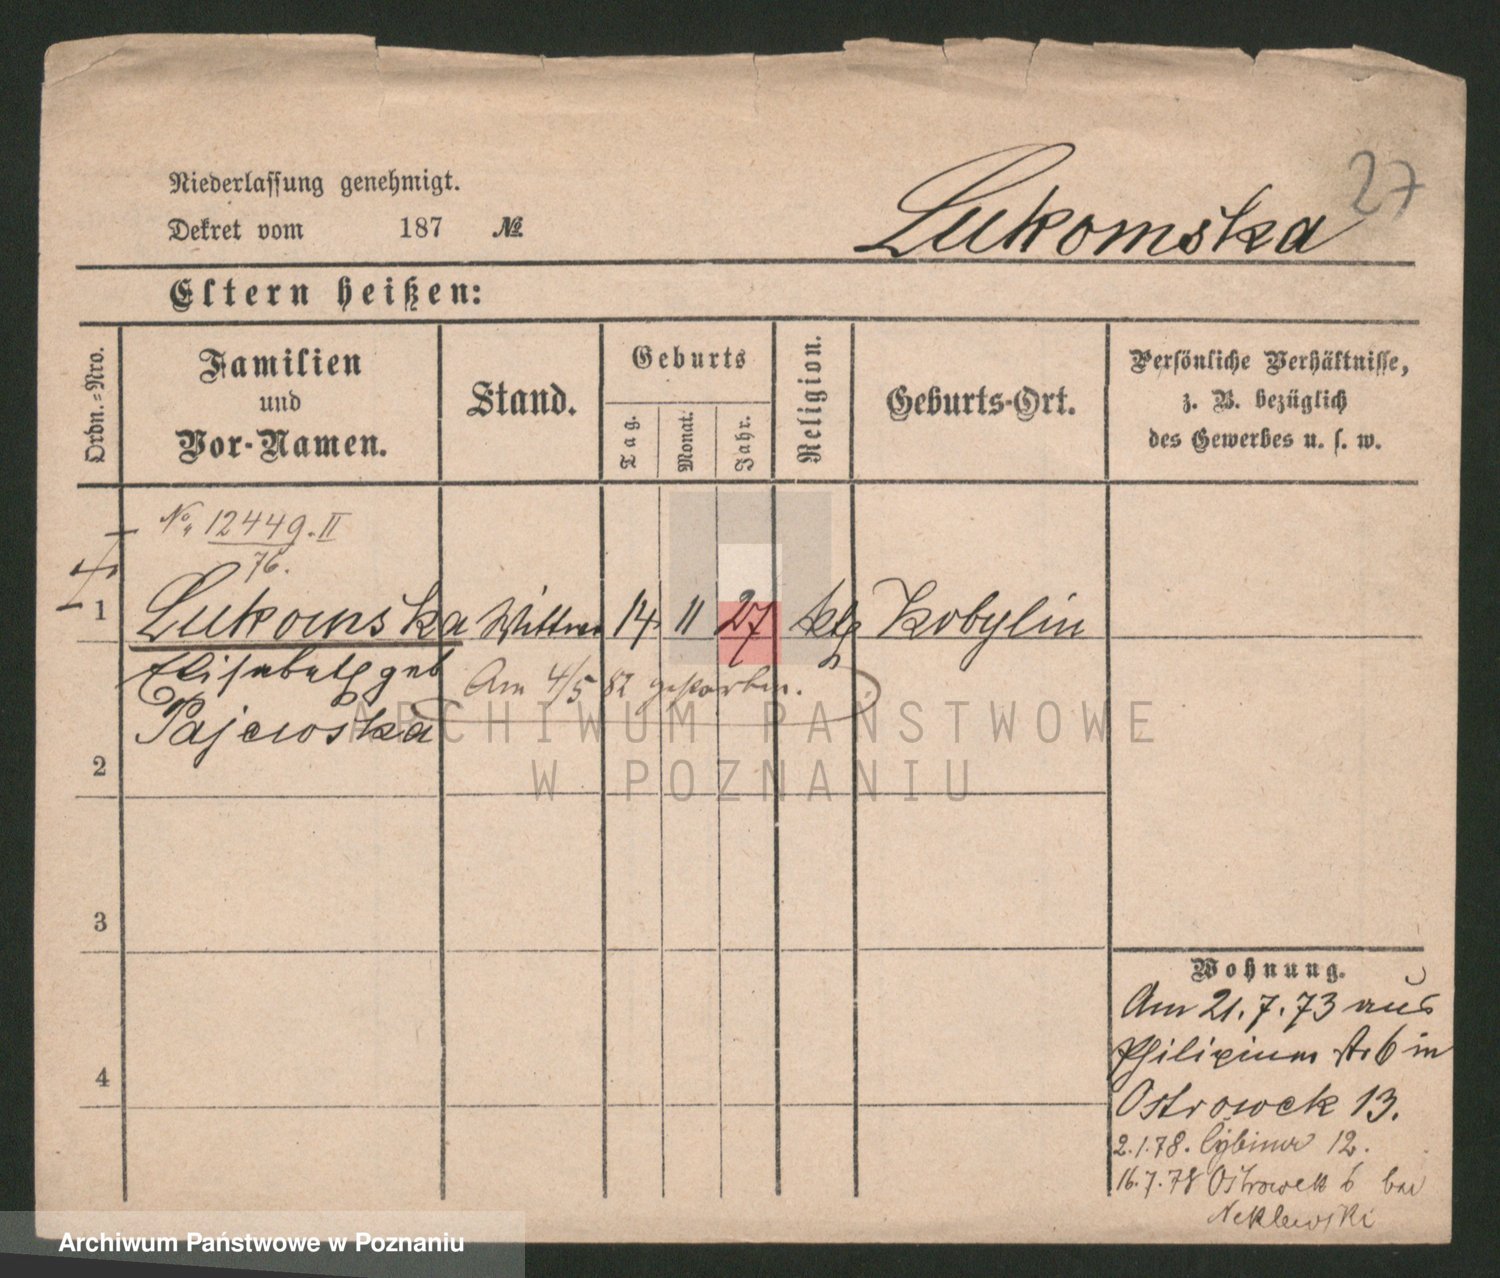 27
Niederlassung genehmigt.
Dekret vom 187 №
Lukomska
Eltern heißen:
Ordn.-Nro.
Familien
und
Vor-Namen.
Stand.
Geburts
Tag.
Monat.
Jahr.
Religion.
Geburts-Ort.
Persönliche Verhältnisse,
z. B. bezüglich
des Gewerbes u. s. w.
No 12449.II
76.
1 Lukomska Wittwe 14 11 27 ktl Kobylin
Elisabeth geb
Am 4/5 82 gestorben.
Pajewska
2
3
4
Wohnung.
Am 21.7.73 aus
6 in
Ostrowek 13.
2.1.78. Cybina 12.
16.7.78 Ostrowek 6 bei
Neklewski
ARCHIWUM PAŃSTWOWE
W POZNANIU
Archiwum Państwowe w Poznaniu